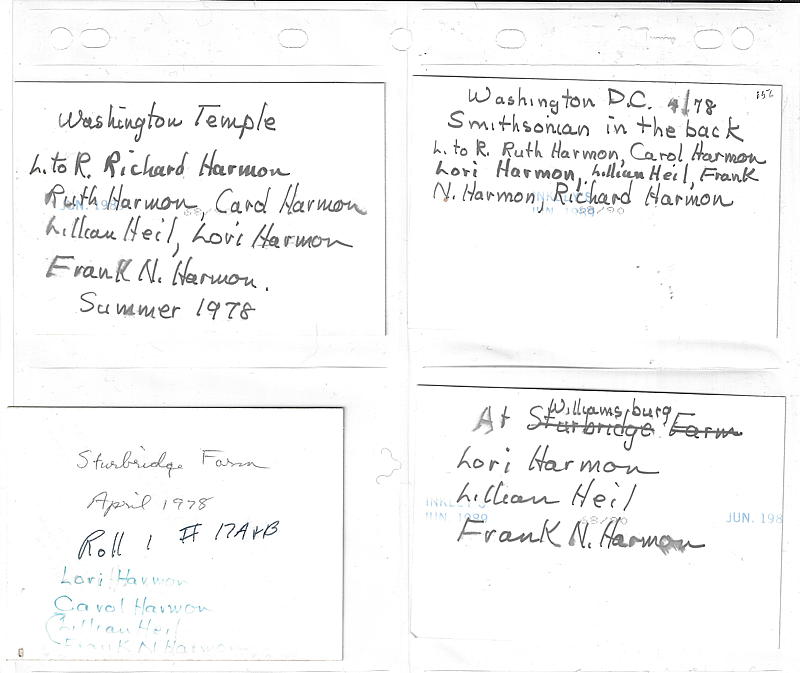 Washington Temple
L. to R. Richard Harmon
Ruth Harmon, Carol Harmon
Lillian Heil, Lori Harmon
Frank N. Harmon.
Summer 1978
Washington D.C. 4/78
Smithsonian in the back
L. to R. Ruth Harmon, Carol Harmon
Lori Harmon, Lillian Heil, Frank
N. Harmon, Richard Harmon
JUN. 1989
Sturbridge Farm
April 1978
Roll 1 # 17A+B
Lori Harmon
Carol Harmon
Lillian Heil
Frank N Harmon
Williamsburg
At Sturbridge Farm
Lori Harmon
Lillian Heil
Frank N. Harmon
JUN. 1989
JUN. 198